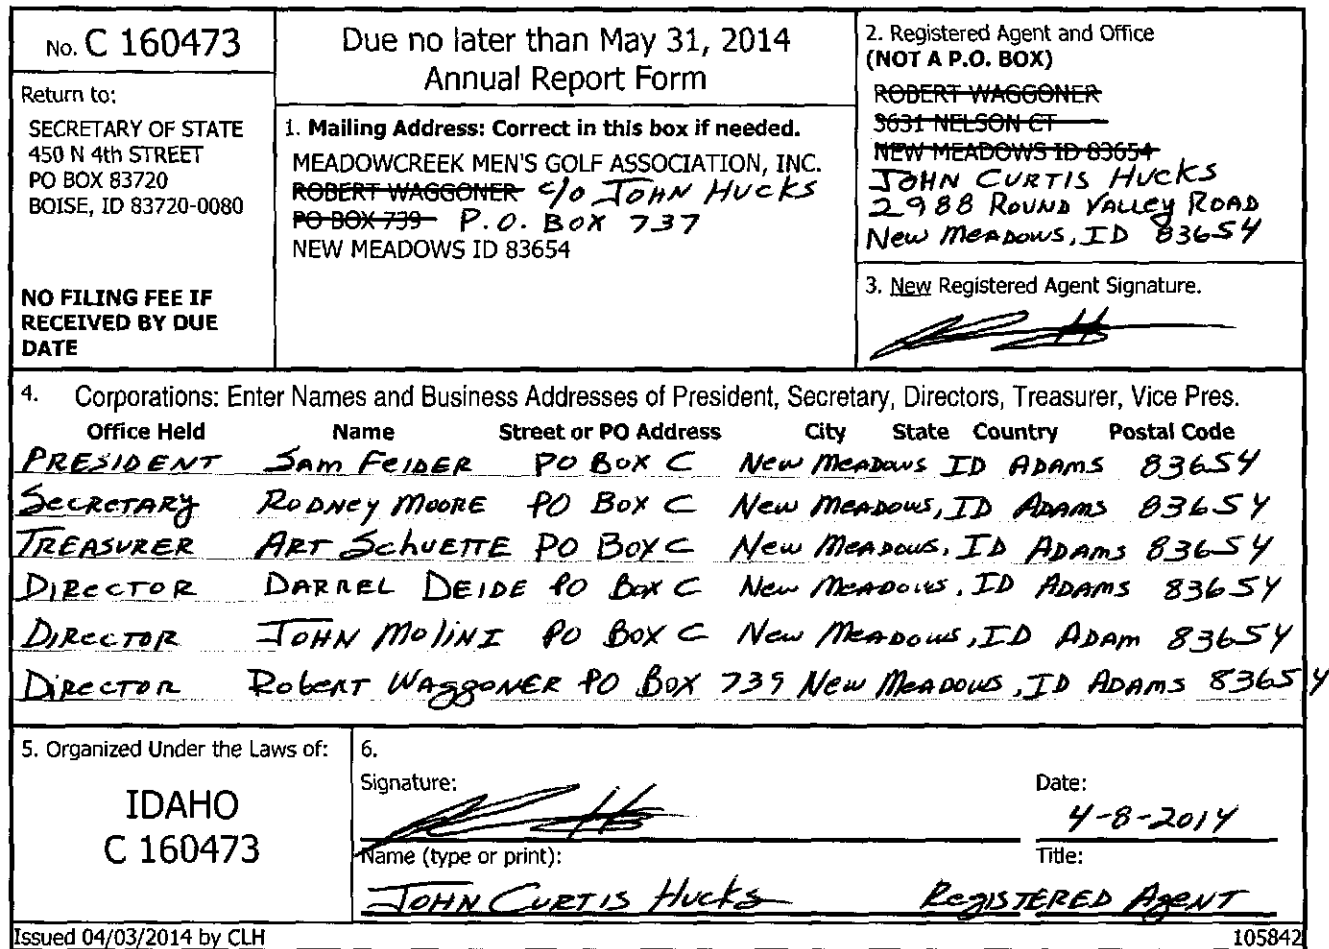 No. C 160473
Return to:
SECRETARY OF STATE
450 N 4th STREET
PO BOX 83720
BOISE, ID 83720-0080
NO FILING FEE IF
RECEIVED BY DUE
DATE
Due no later than May 31, 2014
Annual Report Form
1. Mailing Address: Correct in this box if needed.
MEADOWCREEK MEN'S GOLF ASSOCIATION, INC.
ROBERT WAGGONER c/o JOHN HUCKS
PO BOX 739 P.O. BOX 737
NEW MEADOWS ID 83654
2. Registered Agent and Office
(NOT A P.O. BOX)
ROBERT WAGGONER
3631 NELSON CT
NEW MEADOWS ID 83654
JOHN CURTIS HUCKS
2988 ROUND VALLEY ROAD
New MEADOWS, ID 83654
3. New Registered Agent Signature.
4. Corporations: Enter Names and Business Addresses of President, Secretary, Directors, Treasurer, Vice Pres.
Office Held Name Street or PO Address City State Country Postal Code
PRESIDENT SAM FEIDER PO BOX C New MEADOWS ID ADAMS 83654
SECRETARY RODNEY MOORE PO BOX C New MEADOWS, ID ADAMS 83654
TREASURER ART SCHUETTE PO BOX C New MEADOWS, ID ADAMS 83654
DIRECTOR DARREL DEIDE PO BOX C New MEADOWS, ID ADAMS 83654
DIRECTOR JOHN MOLINI PO BOX C New MEADOWS, ID ADAM 83654
DIRECTOR ROBERT WAGGONER PO BOX 739 New MEADOWS, ID ADAMS 83654
5. Organized Under the Laws of:
IDAHO
C 160473
6.
Signature:
Date:
4-8-2014
Name (type or print):
Title:
JOHN CURTIS HUCKS REGISTERED AGENT
Issued 04/03/2014 by CLH
105842